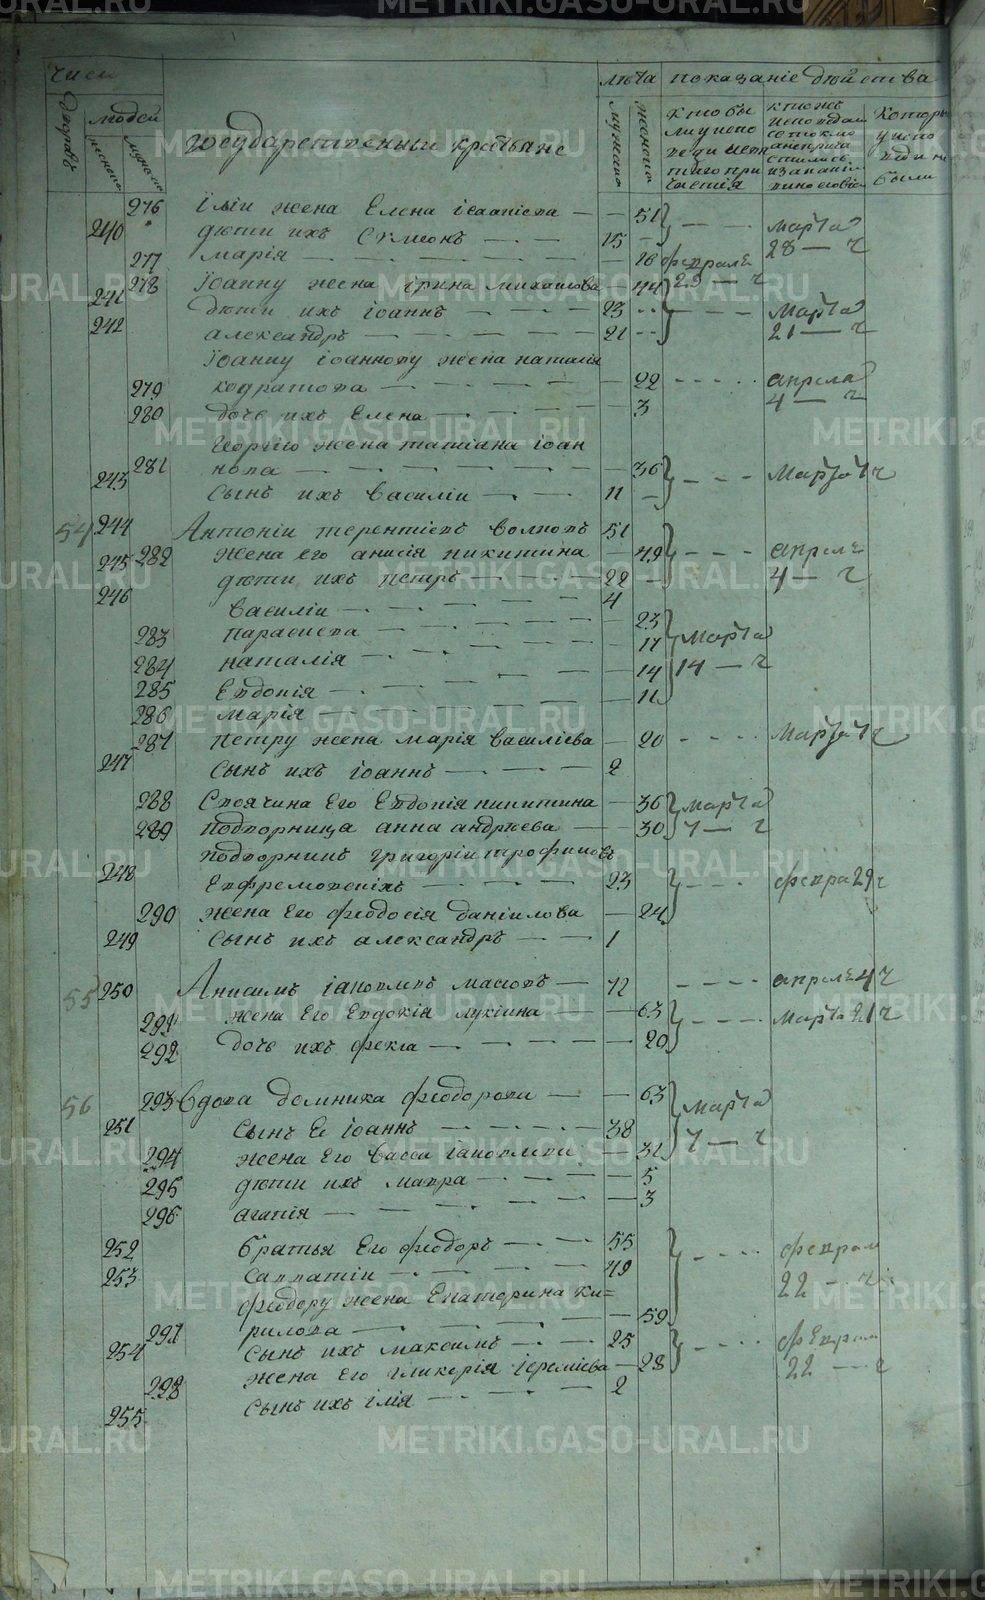 числ
лѣта показаніе дѣйства
дворовъ
людей
мужеска
женска
Государственныи крестьяне
мужеска
женска
кто бы
ли у испо
вѣди
св. при
частія
котор
у испо
вѣди не
были
276 Іліи жена Елена Ісаакіева — — 51 марта
240 дѣти ихъ Сѵмеонъ — — 15 28 — ч
277 марія — — — 16 февраля
278 Іоанну жена Ірина михаилова — 44 23 — ч
241 дѣти ихъ Іоаннъ — — 23 марта
242 александръ — — — 21 21 — ч
Іоанну Іоаннову жена наталія
279 кодратова — — — 22 апреля
280 дочь ихъ Елена — — — 3 4 — ч
Георгію жена татіана Іоан
281 нова — — — 36 марта 7 ч
243 сынъ ихъ Василіи — — 11
54 244 Антоніи терентіевъ волковъ 51
245 282 жена его анисія никитина — 49 апреля
дѣти ихъ петръ — — 22 4 — ч
246 Василіи — — — 4
283 параскева — — — 23 марта
284 наталія — — — 17 14 — ч
285 Евдокія — — — 14
286 марія — — — 11
287 петру жена марія василіева — 20 марта 7 ч
247 сынъ ихъ Іоаннъ — — 2
288 Своячина Его Евдокія никитина — 36 марта
289 подворница анна андреева — 30 7 — ч
подворникъ григоріи трофимовъ
248 Ефремовскихъ — — — 23 февра 29 ч
290 жена Его феодосія даніилова — 24
249 сынъ ихъ александръ — — 1
55 250 Анисимъ Іаковлевъ масловъ — 72 апреля 4 ч
291 жена Его Евдокія лукіина — 63 марта 21 ч
292 дочь ихъ фекла — — — 20
56 293 вдова домника феодорова — — 63 марта
251 сынъ Ея Іоаннъ — — — 38 7 — ч
294 жена Его васса Іаковлева — 31
295 дѣти ихъ мавра — — — 5
296 агапія — — — 3
252 братья Его феодоръ — — 55 феврал
253 савватіи — — — 49 22 — ч
феодору жена Екатерина ки=
297 рилова — — — 59
254 сынъ ихъ максимъ — — 25 феврал
298 жена Его гликерія Іереміева — 28 22 — ч
255 сынъ ихъ Ілія — — — 2
METRIKI.GASO-URAL.RU